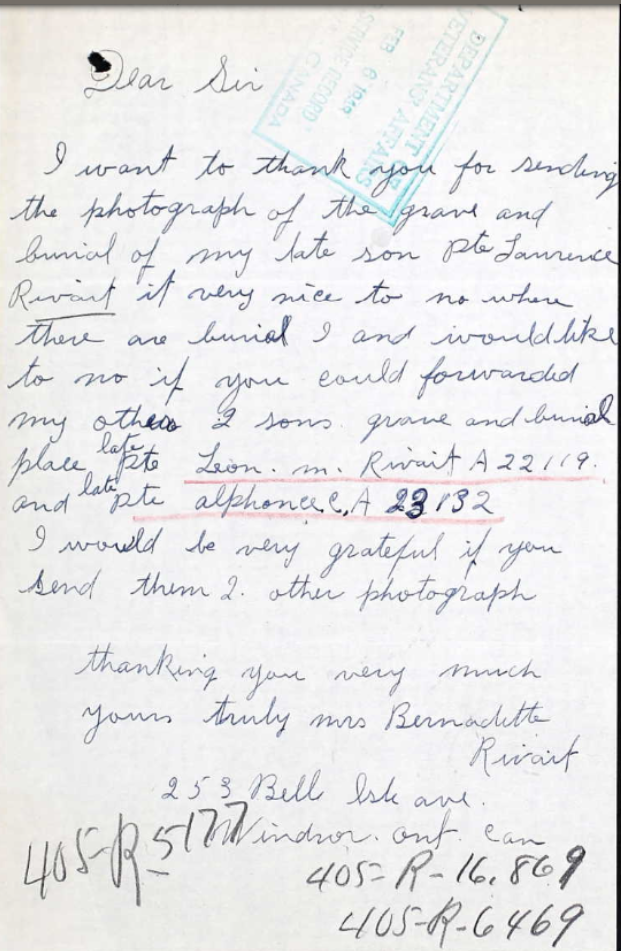 Dear Sir
DEPARTMENT OF
VETERANS AFFAIRS
FEB 6 1948
SERVICE RECORD
CANADA
I want to thank you for sending
the photograph of the grave and
burial of my late son Pte Laurence
Rivait it very nice to no where
there are burial I and would like
to no if you could forwarded
my other 2 sons grave and burial
place late Pte Leon. m. Rivait A 22119.
and late Pte alphonce, C, A 23132
I would be very grateful if you
send them 2. other photograph
thanking you very much
yours truly mrs Bernadette
Rivait
253 Bell Isle ave.
Windsor. ont. Can
405-R-5177
405-R-16.869
405-R-6469